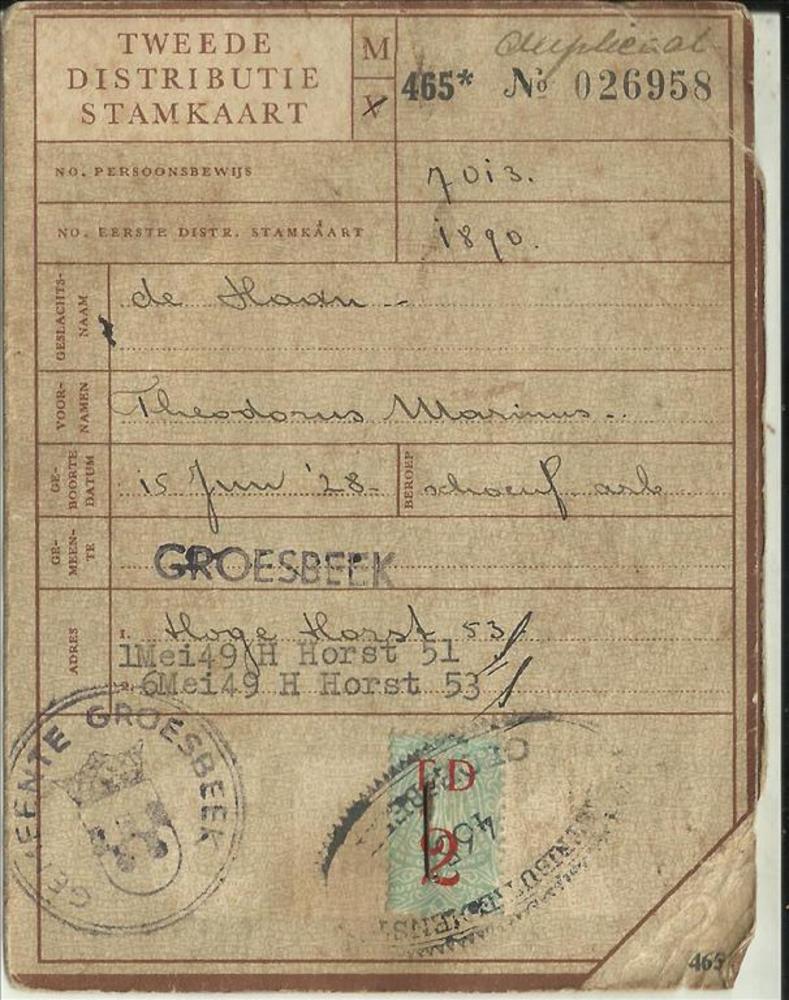 TWEEDE
DISTRIBUTIE
STAMKAART
M
V
Duplicaat
465* No 026958
NO. PERSOONSBEWIJS
7013.
NO. EERSTE DISTR. STAMKAART
1890.
GESLACHTS-
NAAM
de Haan
VOOR-
NAMEN
Theodorus Marinus
GE-
BOORTE
DATUM
15 Juni '28
BEROEP
schoenf. arb
GE-
MEEN-
TE
GROESBEEK
ADRES
1. Hoge Horst 53
1Mei49 H Horst 51
2. 6Mei49 H Horst 53
GEMEENTE GROESBEEK
TD
2
465
DISTRIBUTIEDIENST
465